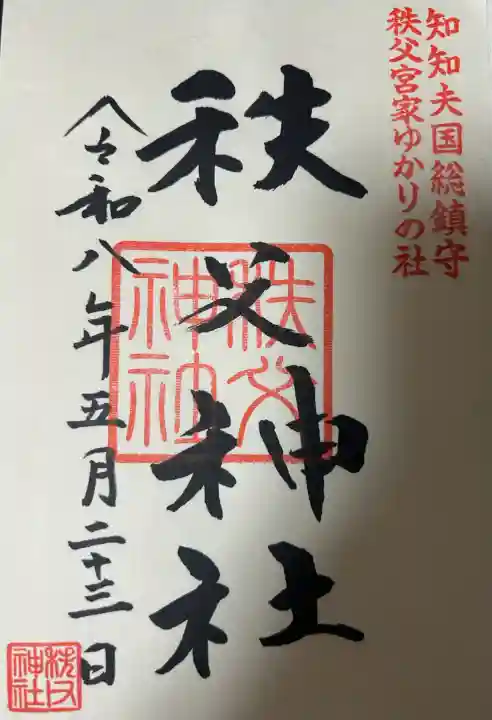 知知夫国総鎮守
秩父宮家ゆかりの社
秩父神社
秩父神社
令和八年五月二十三日
秩父神社